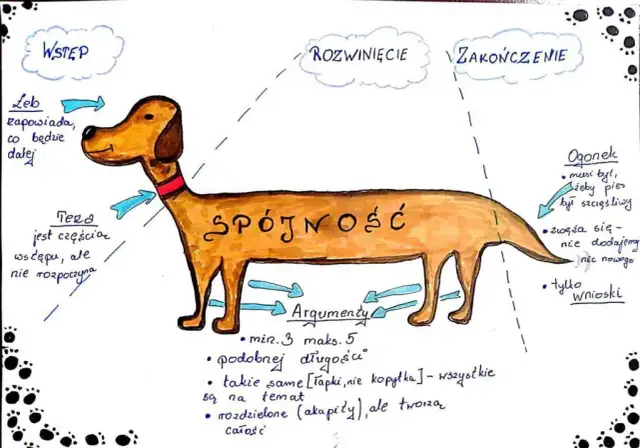 WSTĘP
ROZWINIĘCIE
ZAKOŃCZENIE
Łeb
zapowiada,
co będzie
dalej
Teza
jest częścią
wstępu, ale
nie rozpoczyna
SPÓJNOŚĆ
Ogonek
• musi być,
żeby pies
był szczęśliwy
• zwęża się -
nie dodajemy
nic nowego
• tylko
WNIOSKI
Argumenty
• min. 3 maks. 5
• podobnej długości
• takie same [łapki, nie kopytka] - wszystkie
są na temat
• rozdzielone (akapity), ale tworzą
całość